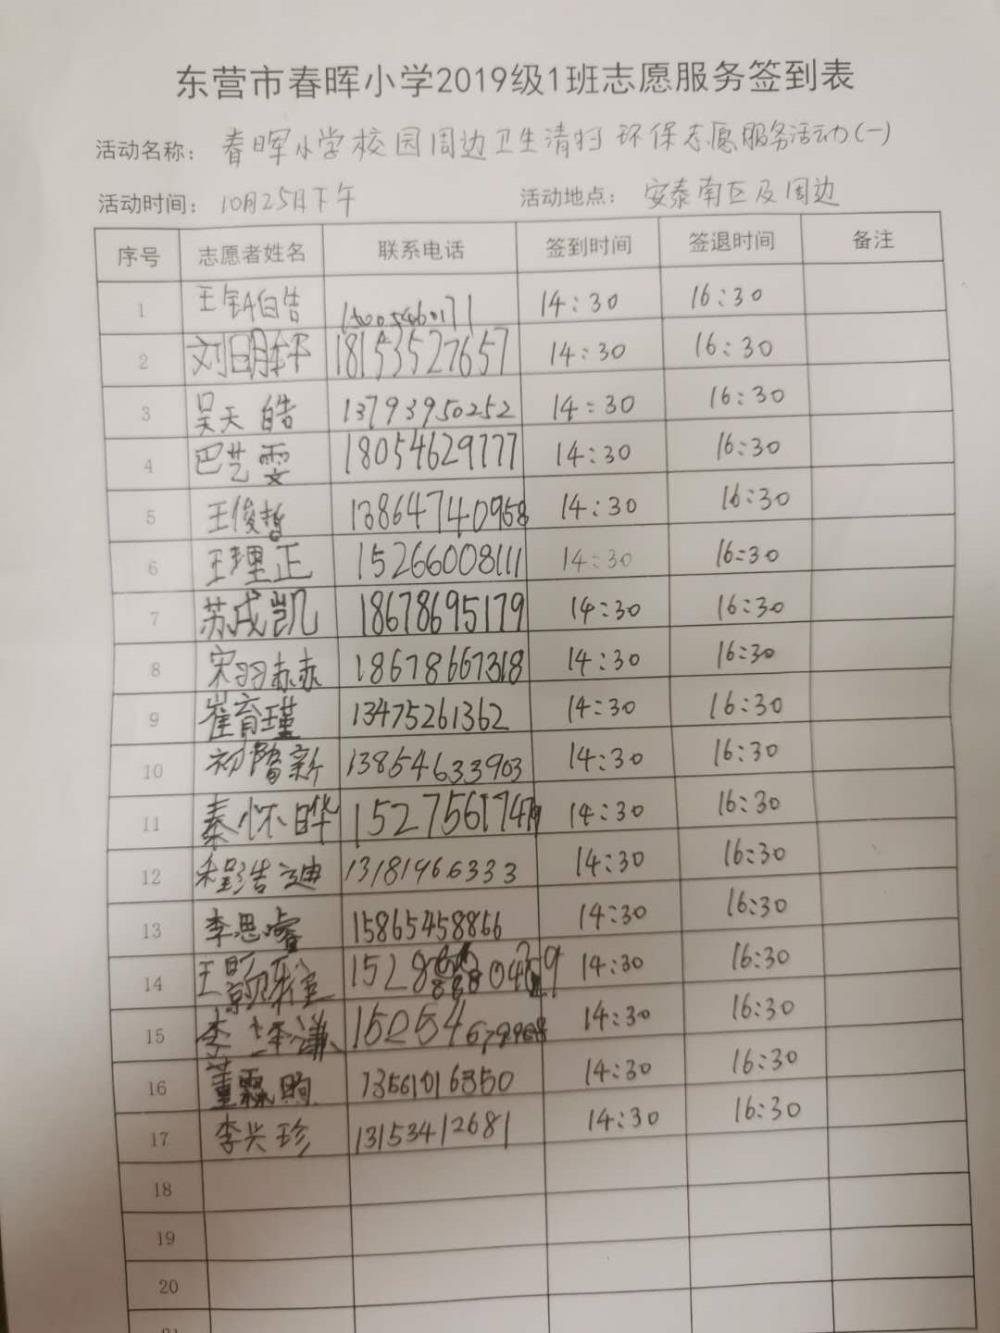 东营市春晖小学2019级1班志愿服务签到表
活动名称： 春晖小学校园周边卫生清扫 环保志愿服务活动(一)
活动时间： 10月25日下午 活动地点： 安泰南区及周边
序号 志愿者姓名 联系电话 签到时间 签退时间 备注
1 14:30 16:30
2 18153527657 14:30 16:30
3 吴天皓 13793950252 14:30 16:30
4 巴艺雯 18054629777 14:30 16:30
5 王俊哲 13864740958 14:30 16:30
6 王理正 15266008111 14:30 16:30
7 苏成凯 18678695179 14:30 16:30
8 宋羽赤赤 18678667318 14:30 16:30
9 崔育瑾 13475261362 14:30 16:30
10 13854633903 14:30 16:30
11 秦怀晔 14:30 16:30
12 程浩迪 13181966333 14:30 16:30
13 李思睿 15865458866 14:30 16:30
14 14:30 16:30
15 14:30 16:30
16 董霖昫 13561016350 14:30 16:30
17 李兴珍 13153412681 14:30 16:30
18
19
20